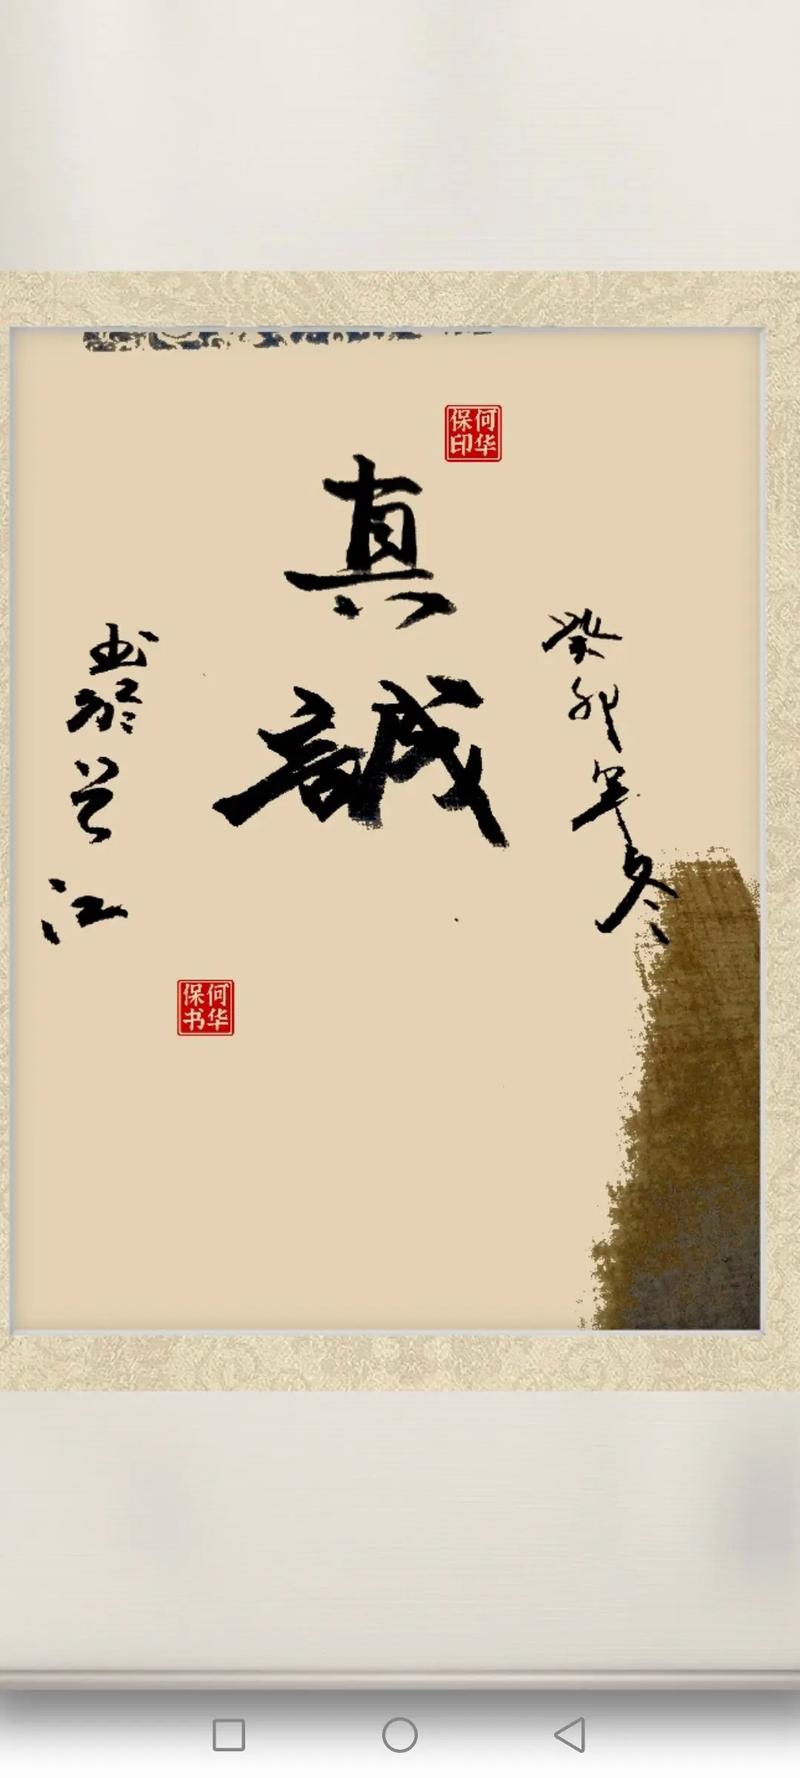 癸卯年冬
何华保印
真誠
书於兰江
何华保书